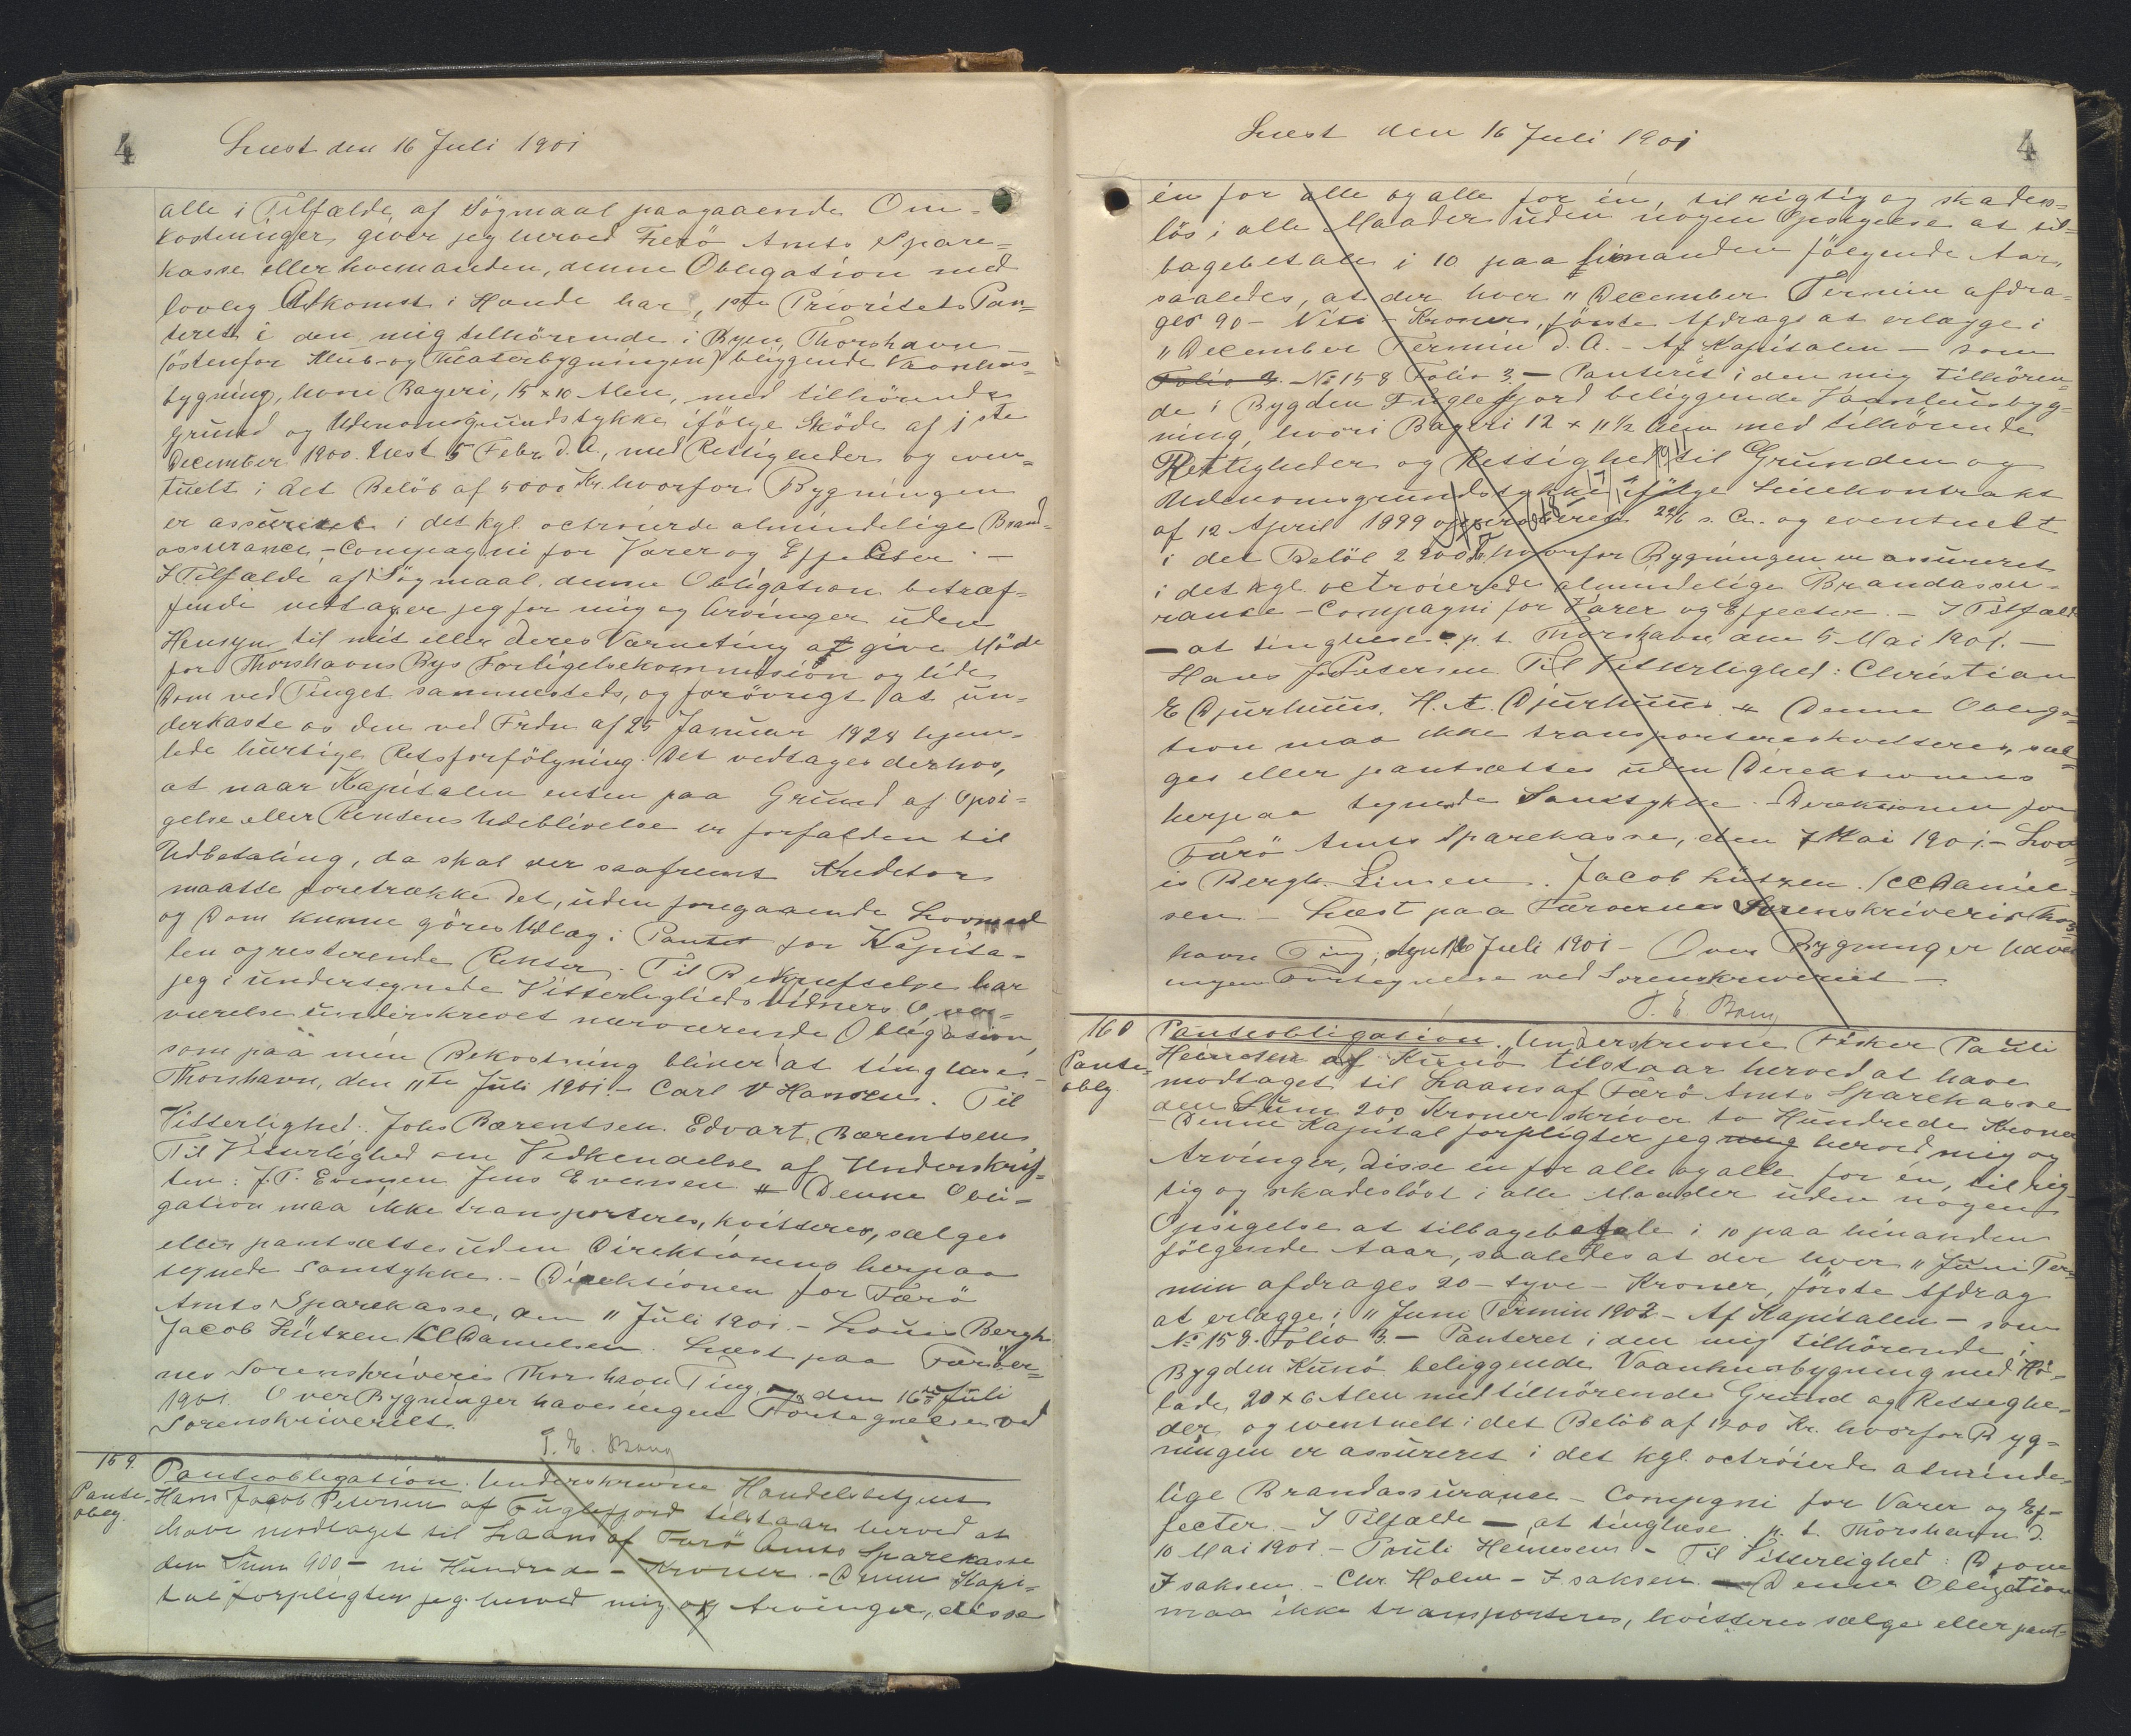 4
Læst den 16 Juli 1901
alle i Tilfælde af Sögmaal paagaaende Om-
kostninger, giver jeg herved Færö Amts Spare-
kasse eller hvemanden, denne Obligation med
lovlig Adkomst i Hænde har, 1ste Prioritets Pan-
teret i den mig tilhörende i Byen Thorshavn
(östenfor Klub- og Theaterbygningen) beliggende Vaanhus-
bygning, hvori Bageri, 15 x 10 Alen, med tilhörende
Grund og Udenomsgrundstykke ifölge Sköde af 1ste
December 1900. læst 5 Febr. d. A., med Rettigheder og even-
tuelt i det Belöb af 5000 Kr. hvorfor Bygningen
er assureret i det kgl. octroierde almindelige Brand-
assurance-Compagni for Varer og Effecter. —
I Tilfælde af Sögmaal denne Obligation betræf-
fende vedtager jeg for mig og Arvinger uden
Hensyn til mit eller deres Værneting at give Möde
for Thorshavns Bys Forligelseskommission og lide
Dom ved Tinget sammesteds, og forövrigt at un-
derkaste os den ved Frdn af 25 Januar 1828 hjem-
lede hurtige Retsforfölgning. Det vedtages derhos,
at naar Kapitalen enten paa Grund af Opsi-
gelse eller Rentens Udeblivelse er forfalden til
Udbetaling, da skal der saafremt Kreditor
maatte foretrække det, uden foregaaende Lovmaal
og Dom kunne göres Udlæg i Pantet for Kapita-
len og resterende Renter. Til Bekræftelse har
jeg i undertegnede Vitterligheds Vidners Over-
værelse underskrevet nærværende Obligation,
som paa min Bekostning bliver at tinglæses.
Thorshavn, den 11te Juli 1901. - Carl V Hansen. Til
Vitterlighed: Johs Bærentsen. Edvart Bærentsen
Til Vitterlighed om Vedkendelse af Underskrif-
ten: J. P. Evensen Jens Evensen " Denne Obli-
gation maa ikke transporteres, kvitteres, sælges
eller pantsættes uden Direktionens herpaa
tegnede Samtykke. - Direktionen for Færö
Amts Sparekasse, den 11 Juli 1901. - Louis Bergh
Jacob Lützen / CC Danielsen. Læst paa Færöer-
nes Sorenskriveris Thorshavn Ting, den 16de Juli
1901. Over Bygninger haves ingen Fortegnelse ved
Sorenskriveriet.
T. E. Bang
159.
Pante-
oblg.
Panteobligation. Underskrevne Handelsbetjent
Hans Jacob Petersen af Fuglefjord tilstaar herved at
have modtaget til Laans af Færö Amts Sparekasse
den Sum 900 - ni Hundrede - Kroner. - Denne Kapi-
tal forpligter jeg herved mig og Arvinger, disse
Læst den 16 Juli 1901
4
én for alle og alle for én, til rigtig og skades-
lös i alle Maader uden nogen Opsigelse at til-
bagebetale i 10 paa hinanden fölgende Aar,
saaledes, at der hver 11 December Termin afdra-
ges 90 - Niti - Kroner, förste Afdrag at erlægge i
11 December Termin d. A. - Af Kapitalen - som
Folio 3. № 158 Folio 3. - Panteret i den mig tilhören-
de i Bygden Fuglefjord beliggende Vaanhusbyg-
ning, hvori Bageri 12 x 11 1/2 Alen med tilhörende
Rettigheder og Rettighed til Grunden og
Udenomsgrundstykke ifölge Leiekontrakt
af 12 April 1899 22/6 s. A. og eventuelt
i det Belöb 2200 Kr. hvorfor Bygningen er assureret
i det kgl. octroierede almindelige Brandassu-
rance-Compagni for Varer og Effecter. - I Tilfælde
— at tinglæses p. t. Thorshavn den 5 Mai 1901. -
Hans J Petersen Til Vitterlighed: Christian
E Djurhuus. H. A. Djurhuus. " Denne Obliga-
tion maa ikke transporteres kvitteres, sæl-
ges eller pantsættes uden Direktionens
herpaa tegnede Samtykke. Direktionen for
Færö Amts Sparekasse, den 7 Mai 1901. - Lou-
is Bergh. Jacob Lützen. / CC Daniel-
sen - Læst paa Færöernes Sorenskriveris Thors-
havn Ting, den 16 Juli 1901 - Over Bygninger haves
ingen Fortegnelse ved Sorenskriveriet —
T. E. Bang
160
Pante-
oblg
Panteobligation. Underskrevne Fisker Pauli
Heinesen af Kunö tilstaar herved at have
modtaget til Laans af Færö Amts Sparekasse
den Sum 200 Kroner skriver to Hundrede Kroner
- Denne Kapital forpligter jeg mig herved mig og
Arvinger, disse én for alle og alle for én, til rig-
tig og skadeslöst i alle Maader uden nogen
Opsigelse at tilbagebetale i 10 paa hinanden
fölgende Aar, saaledes at der hver 11 Juni Ter-
min afdrages 20 - tyve - Kroner, förste Afdrag
at erlægge i 11 Juni Termin 1902 - Af Kapitalen - som
№ 158. Folio 3. - Panteret i den mig tilhörende i
Bygden Kunö beliggende Vaanhusbygning med
20 x 6 Alen med tilhörende Grund og Rettighe-
der, og eventuelt i det Belöb af 1200 Kr. hvorfor Byg-
ningen er assureret i det kgl. octröierde alminde-
lige Brandassurance - Compgni for Varer og Ef-
fecter. - I Tilfælde — at tinglæse. p. t. Thorshavn d.
10 Mai 1901. - Pauli Heinesen - Til Vitterlighed: Djone
Isaksen. - Chr. Holm - Isaksen. — Denne Obligation
maa ikke transporteres, kvitteres sælges eller pant-